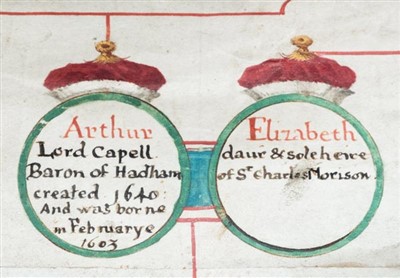 Arthur
Lord Capell
Baron of Hadham
created 1640:
And was borne
in Februarye
1603
Elizabeth
daur & sole heire
of Sr Charles Morison